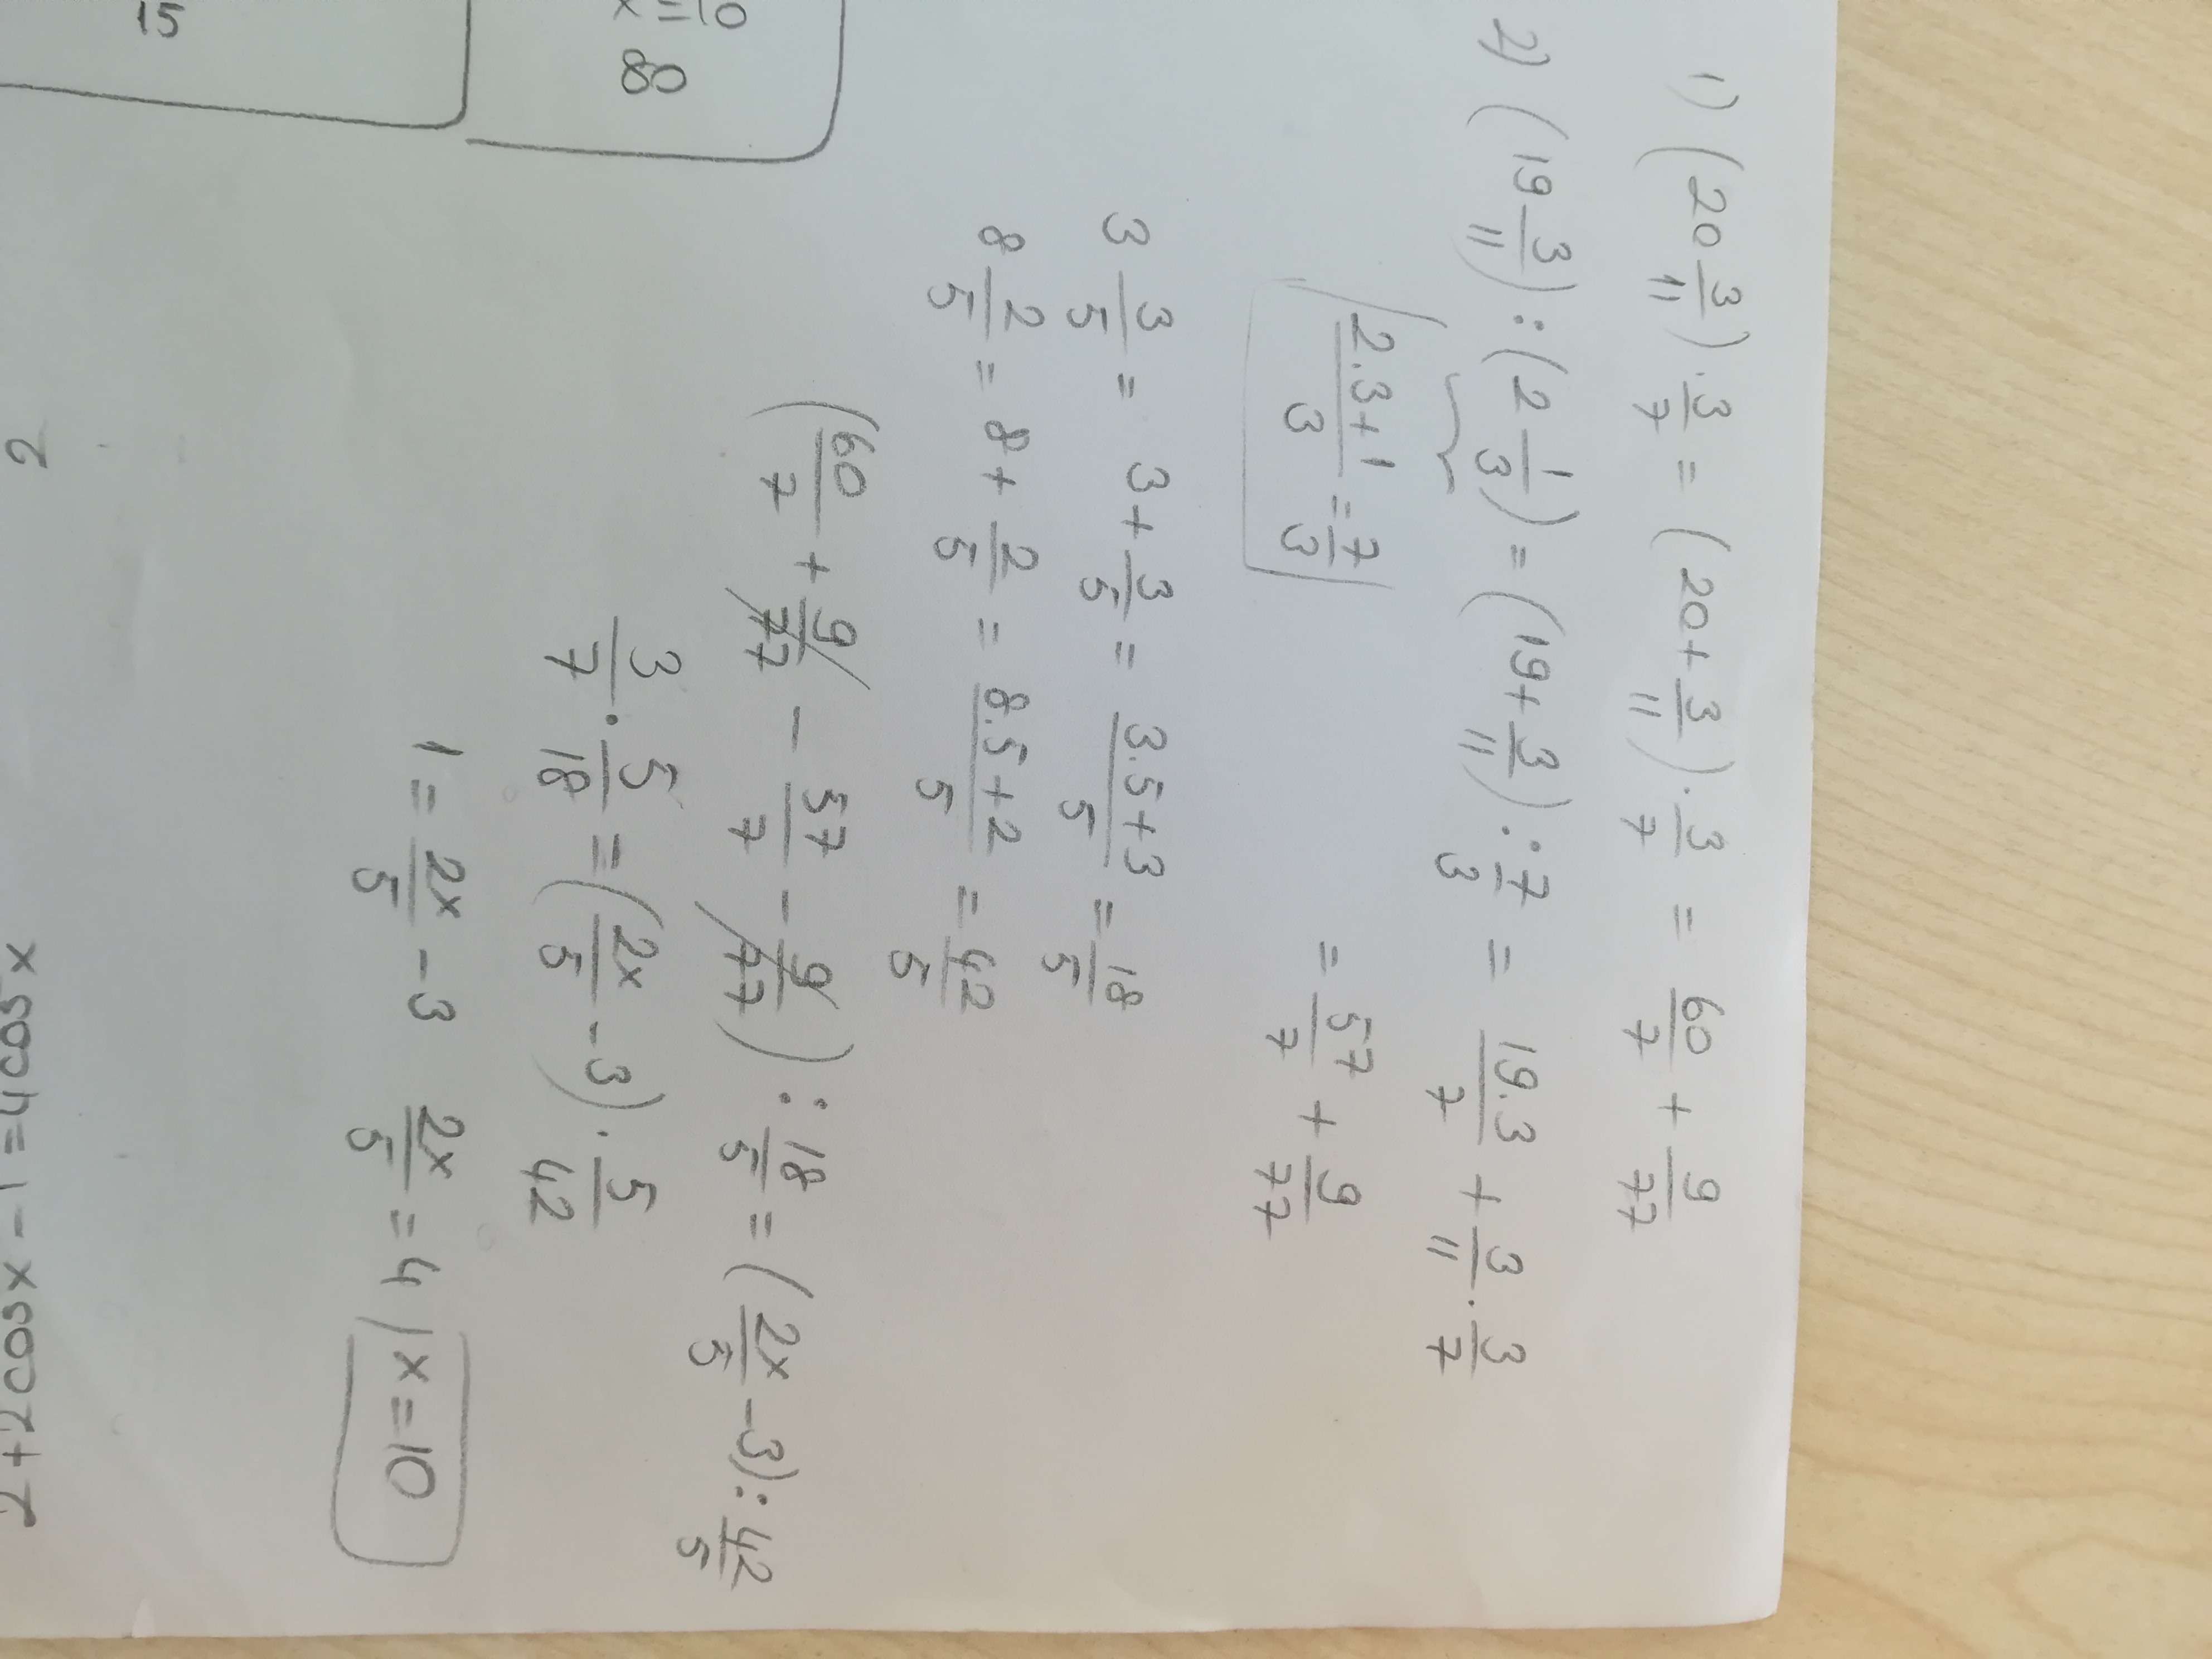 1) (20 3/11) · 3/7 = (20 + 3/11) · 3/7 = 60/7 + 9/77
2) (19 3/11) : (2 1/3) = (19 + 3/11) : 7/3 = 19.3/7 + 3/11 · 3/7
2.3+1/3 = 7/3
= 57/7 + 9/77
3 3/5 = 3 + 3/5 = 3.5+3/5 = 18/5
8 2/5 = 8 + 2/5 = 8.5+2/5 = 42/5
(60/7 + 9/77 - 57/7 - 9/77) : 18/5 = (2x/5 - 3) : 42/5
3/7 · 5/18 = (2x/5 - 3) · 5/42
1 = 2x/5 - 3 2x/5 = 4 x = 10
10
x = 8
15
2
2+2cosx - 1 = 4cosx